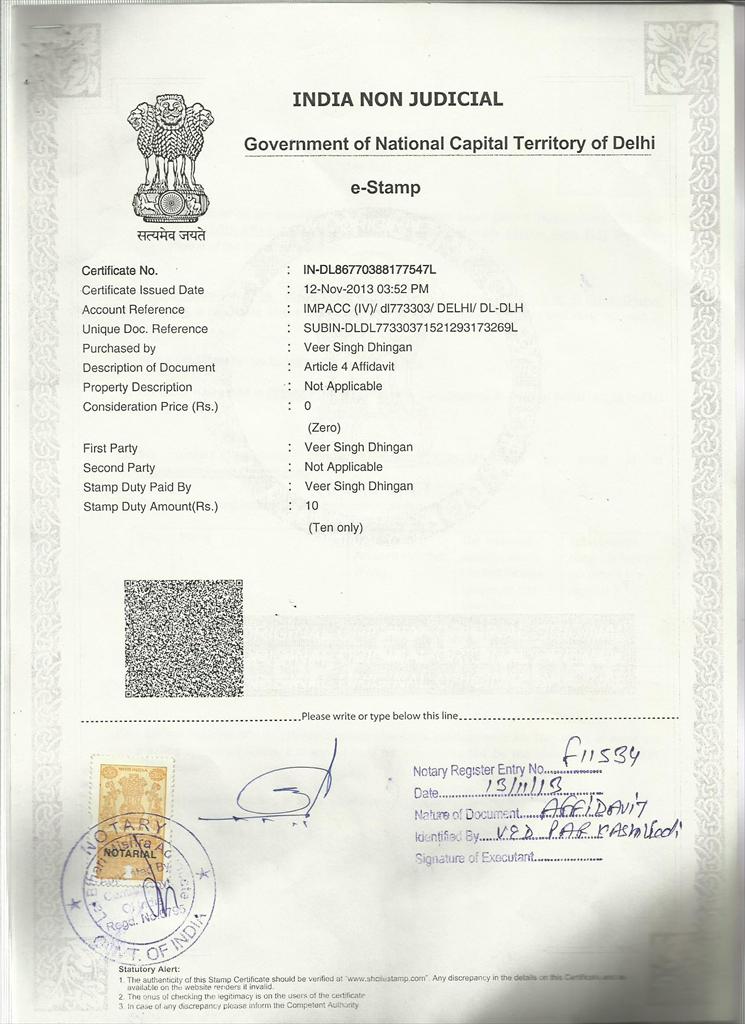 INDIA NON JUDICIAL
Government of National Capital Territory of Delhi
e-Stamp
सत्यमेव जयते
Certificate No. : IN-DL86770388177547L
Certificate Issued Date : 12-Nov-2013 03:52 PM
Account Reference : IMPACC (IV)/ dl773303/ DELHI/ DL-DLH
Unique Doc. Reference : SUBIN-DLDL77330371521293173269L
Purchased by : Veer Singh Dhingan
Description of Document : Article 4 Affidavit
Property Description : Not Applicable
Consideration Price (Rs.) : 0
(Zero)
First Party : Veer Singh Dhingan
Second Party : Not Applicable
Stamp Duty Paid By : Veer Singh Dhingan
Stamp Duty Amount(Rs.) : 10
(Ten only)
Please write or type below this line
Notary Register Entry No. F11534
Date 13/11/13
Nature of Document AFFIDAVIT
Identified By VED PARKASH
Signature of Executant
NOTARY
NOTARIAL
Regd. No.
GOVT. OF INDIA
Statutory Alert:
1. The authenticity of this Stamp Certificate should be verified at "www.shcilestamp.com". Any discrepancy in the details on this Certificate and as
available on the website renders it invalid.
2. The onus of checking the legitimacy is on the users of the certificate
3. In case of any discrepancy please inform the Competent Authority